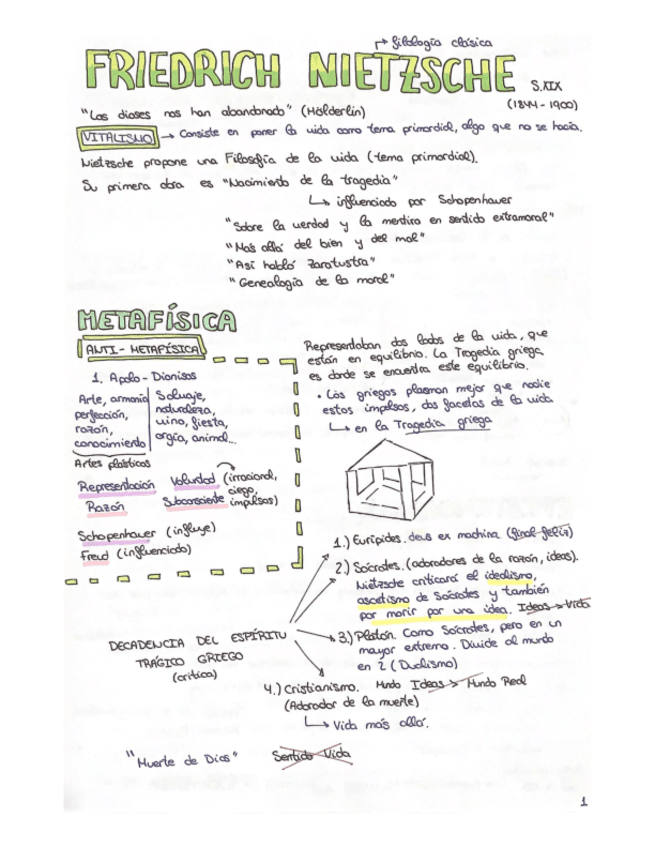 filología clásica
FRIEDRICH NIETZSCHE S.XIX
(1844-1900)
"Los dioses nos han abandonado" (Hölderlin)
VITALISMO → Consiste en poner la vida como tema primordial, algo que no se hacía.
Nietzsche propone una Filosofía de la vida (tema primordial).
Su primera obra es "Nacimiento de la tragedia"
↳ influenciado por Schopenhauer
"Sobre la verdad y la mentira en sentido extramoral"
"Más allá del bien y del mal"
"Así habló Zaratustra"
"Genealogía de la moral"
METAFÍSICA
ANTI-METAFÍSICA
1. Apolo - Dionisos
Arte, armonía
perfección,
razón,
conocimiento
Salvaje,
naturaleza,
vino, fiesta,
orgía, animal...
Artes plásticas
Representación Voluntad (irracional,
ciego,
Razón Subconsciente impulsos)
Schopenhauer (influye)
Freud (influenciado)
Representaban dos lados de la vida, que
están en equilibrio. La Tragedia griega
es donde se encuentra este equilibrio.
• Los griegos plasman mejor que nadie
estos impulsos, dos facetas de la vida
↳ en la Tragedia griega
DECADENCIA DEL ESPÍRITU
TRÁGICO GRIEGO
(crítica)
1.) Eurípides. deus ex machina (final feliz)
2.) Sócrates. (adoradores de la razón, ideas).
Nietzsche criticará el idealismo,
ascetismo de Sócrates y también
por morir por una idea. Ideas > Vida
3.) Platón. Como Sócrates, pero en un
mayor extremo. Divide al mundo
en 2 (Dualismo)
Mundo Ideas > Mundo Real
4.) Cristianismo.
(Adorador de la muerte)
↳ Vida más allá.
"Muerte de Dios" Sentido Vida
1